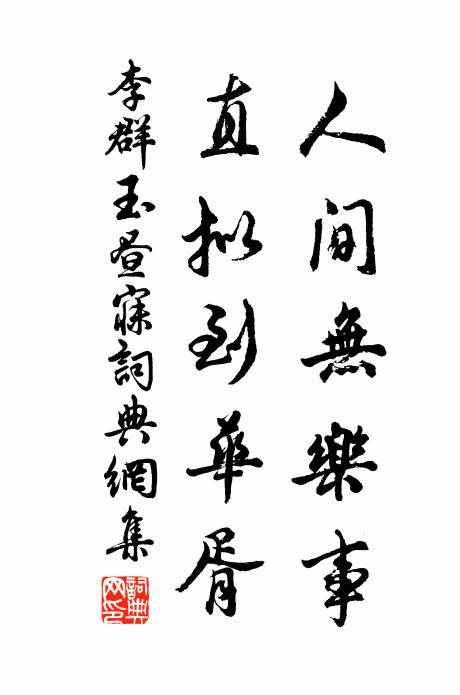 人間無樂事
直擬到華胥
李群玉晝寐詞典網集
詞典網印